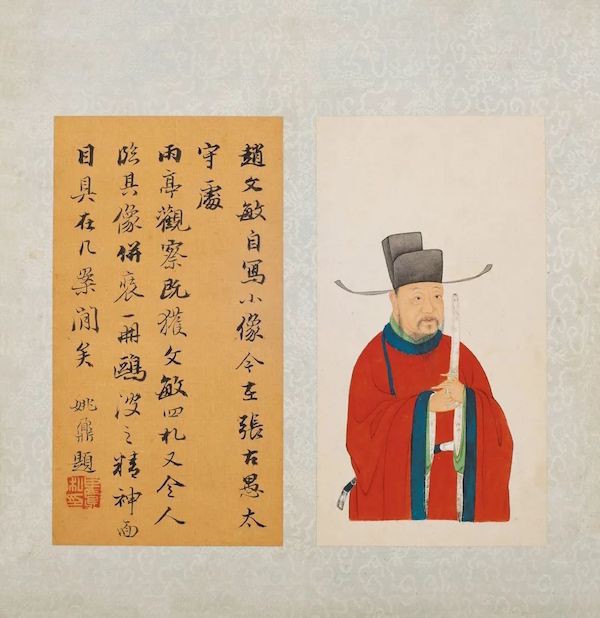 趙文敏自寫小像今在張古愚太
守處
雨亭觀察既獲文敏四札又令人
臨其像併裝一冊鷗波之精神面
目具在几案間矣　姚鼐題